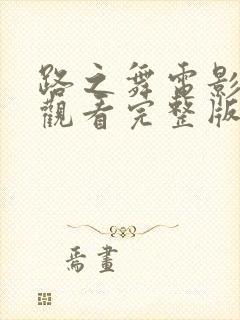 路之舞電影
觀看完整版
焉畫